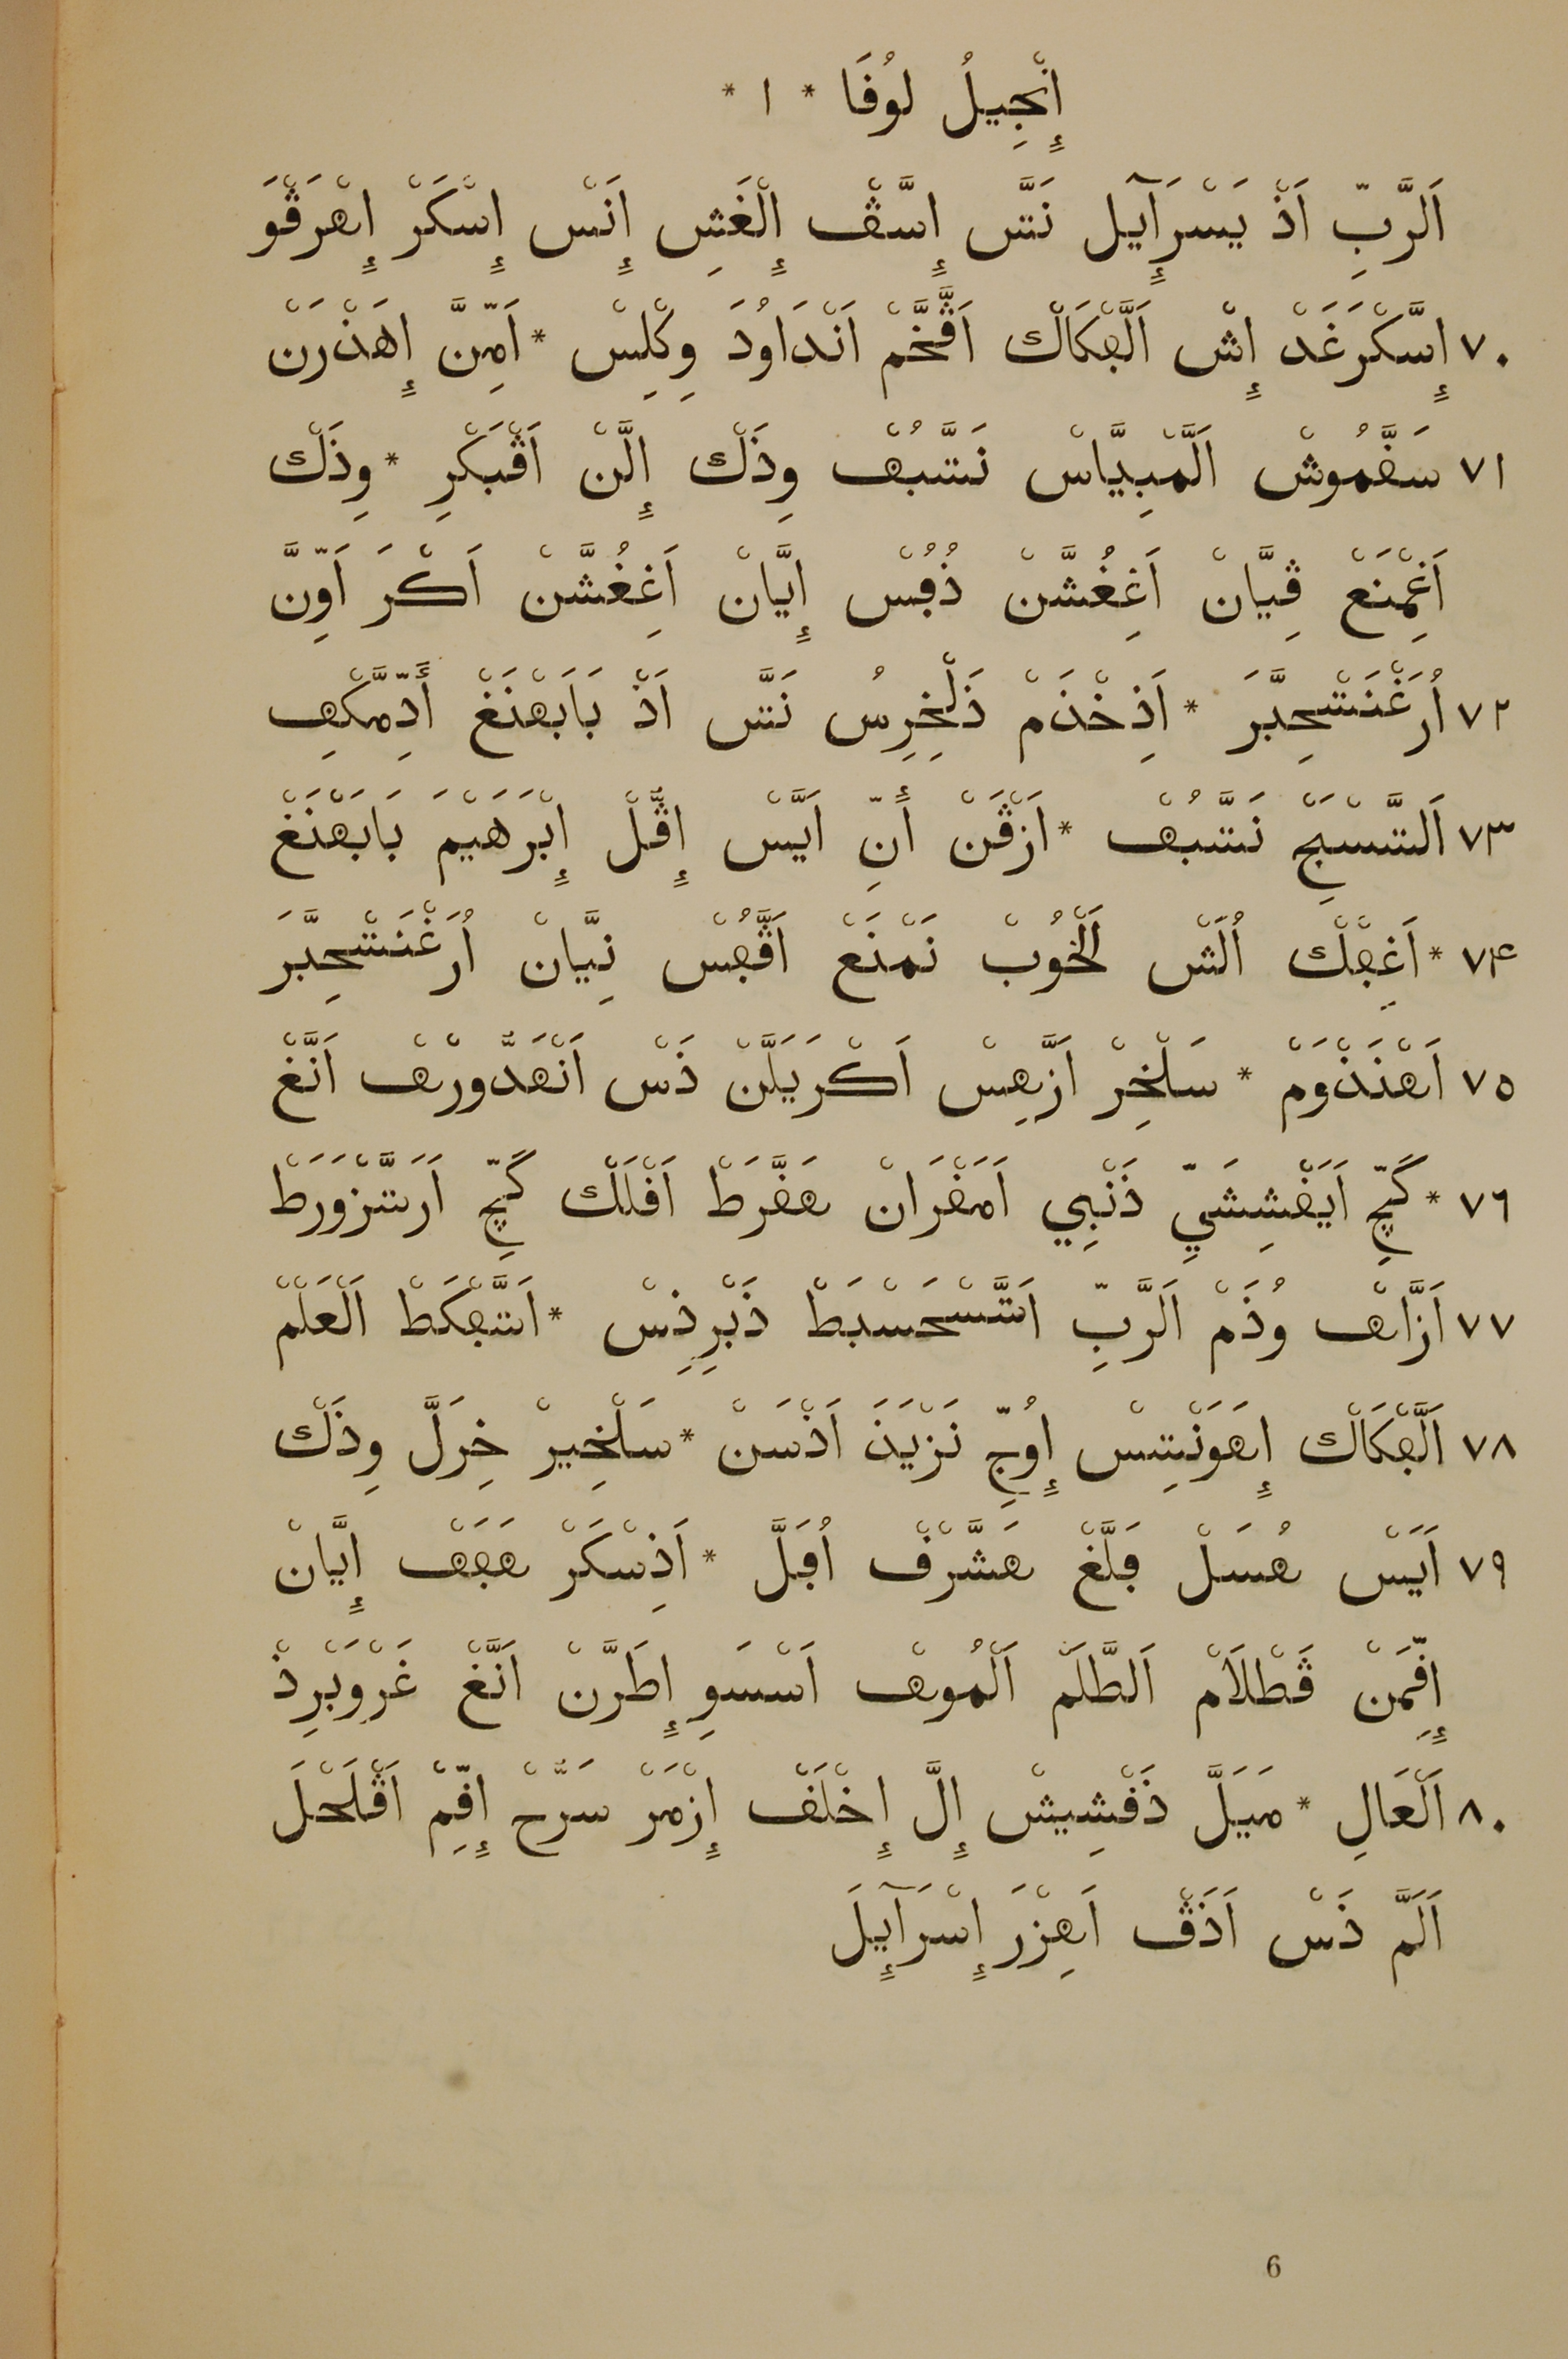 إِنْجِيلُ لوُفَا * ١ *
اَلرَّبِّ اَذْ يَسْرَإَيل نَتَّس إِسَّڢْ إِلْغَشِ إِنَسْ إِسْكَرْ إِهْرَڢْوَ
٧٠ إِسَّكْرَغَدْ إِشْ اَلَّهْكَاكْ اَڢَّخَّمْ اَنْدَاوُدَ وِكْلِسْ * اَمِّنَّ إِهَدْرَنْ
٧١ سَفَّمُوشْ اَلَّمْبِيَّاسْ نَتَّسبُهْ وِذَكْ إِلَّنْ اَڢْبَكْرِ * وِذَكْ
اَغِمْنَعْ ڢِيَّانْ اَغِغُشَّنْ ذُفُسْ إِيَّانْ اَغِغُشَّنْ اَكْرَ اَوِّنَّ
٧٢ اُرَغْنَتْسحِبَّرَ * اَذِخْذَمْ ذَلْخِرِسُ نَتَّس اَذْ بَابَهْنَغْ أَدِّمَّكْهِ
٧٣ اَلتَّسْبَحْ نَتَّسبُهْ * اَزْڢَنْ أَنِّ اَيَّسْ إِڢُّلْ إِبْرَهَيْمَ بَابَهْنَغْ
٧٤ * اَغِهْلَكْ اُلَشْ لَخُوبْ نَمْنَعْ اَڢَّهُسْ نِيَّانْ اُرَغْنَتْسحِبَّرَ
٧٥ اَهْنَذْوَمْ * سَلْخِرْ اَزَّهِسْ اَكْرَيَلَّنْ ذَسْ اَنْهَدُّورْهْ اَنَّغْ
٧٦ * كَچِّ اَيَفْشِشَيِّ ذَنْبِي اَمَقْرَانْ هَفَّرَطْ اَفْلَكْ كَچِّ اَرَتَّسزْوَرَطْ
٧٧ اَزَّاهْ وُذَمْ اَلرَّبِّ اَتَّسْحَسْبَطْ ذَبْرِذِسْ * اَتَّسهْكَطْ اَلْعَلَمْ
٧٨ اَلَّهْكَاكْ إِهَوَنْتِسْ إِوُجِّ نَزْيَنَ اَذْسَنْ * سَلْخِيرْ خِرَلَّ وِذَكْ
٧٩ اَيَسْ هُسَلْ فَلَّغْ هَشَّرْڢْ اُفَلَّ * اَذِسْكَرْ هَفَهْ إِيَّانْ
إِڢِّمَنْ ڢَطْلَامْ اَلطَّلَمْ اَلْمُوهْ اَسْسَوِ إِطَرَّنْ اَنَّغْ غَرْوَبْرِذْ
٨٠ اَلْعَالِ * مَيَلَّ ذَفْشِيشْ إِلَّ إِخْلَفْ إِزْمَرْ سَرُّحْ إِڢِّمْ اَڢْلَحْلَ
اَلَمَّ ذَسْ اَذَڢْ اَهِزْرَ إِسْرَآيِلَ
6